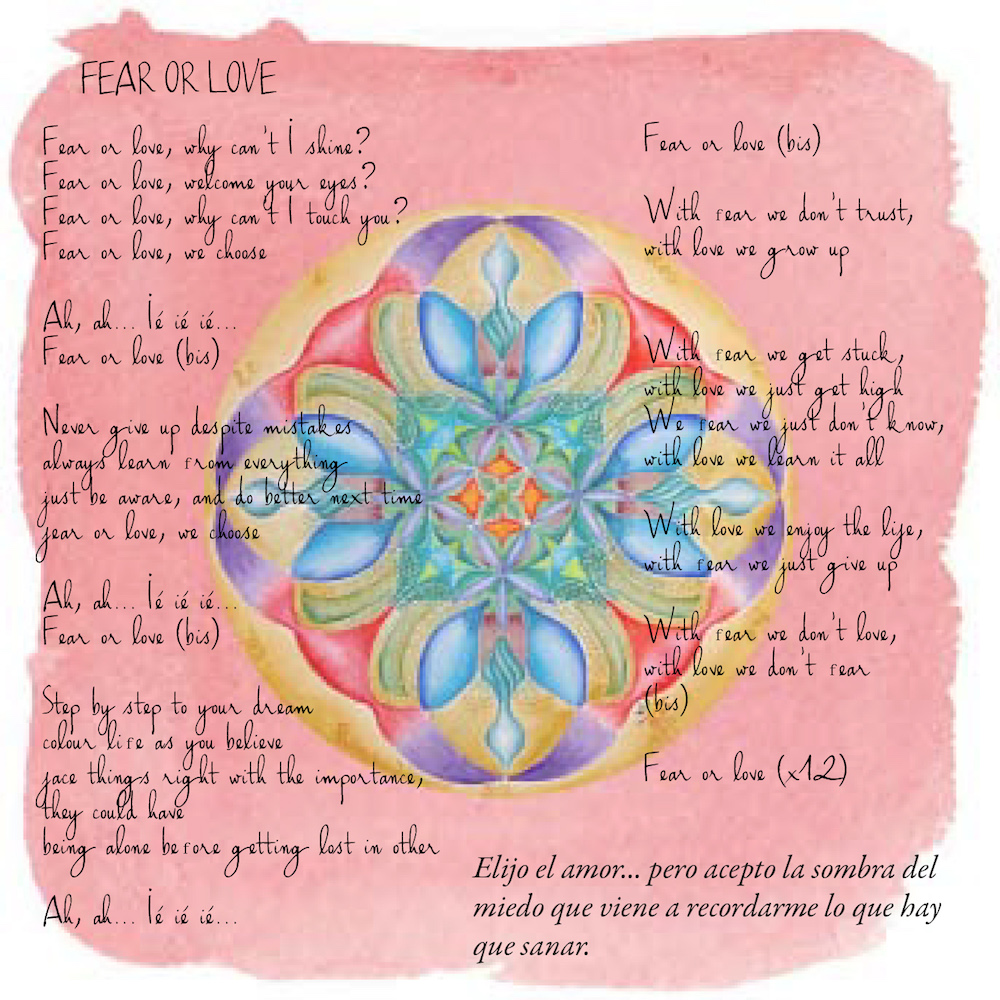 FEAR OR LOVE
Fear or love, why can't I shine?
Fear or love, welcome your eyes?
Fear or love, why can't I touch you?
Fear or love, we choose
Ah, ah... Ié ié ié...
Fear or love (bis)
Never give up despite mistakes
always learn from everything
just be aware, and do better next time
fear or love, we choose
Ah, ah... Ié ié ié...
Fear or love (bis)
Step by step to your dream
colour life as you believe
face things right with the importance,
they could have
being alone before getting lost in other
Ah, ah... Ié ié ié...
Fear or love (bis)
With fear we don't trust,
with love we grow up
With fear we get stuck,
with love we just get high
We fear we just don't know,
with love we learn it all
With love we enjoy the life,
with fear we just give up
With fear we don't love,
with love we don't fear
(bis)
Fear or love (x12)
Elijo el amor... pero acepto la sombra del
miedo que viene a recordarme lo que hay
que sanar.